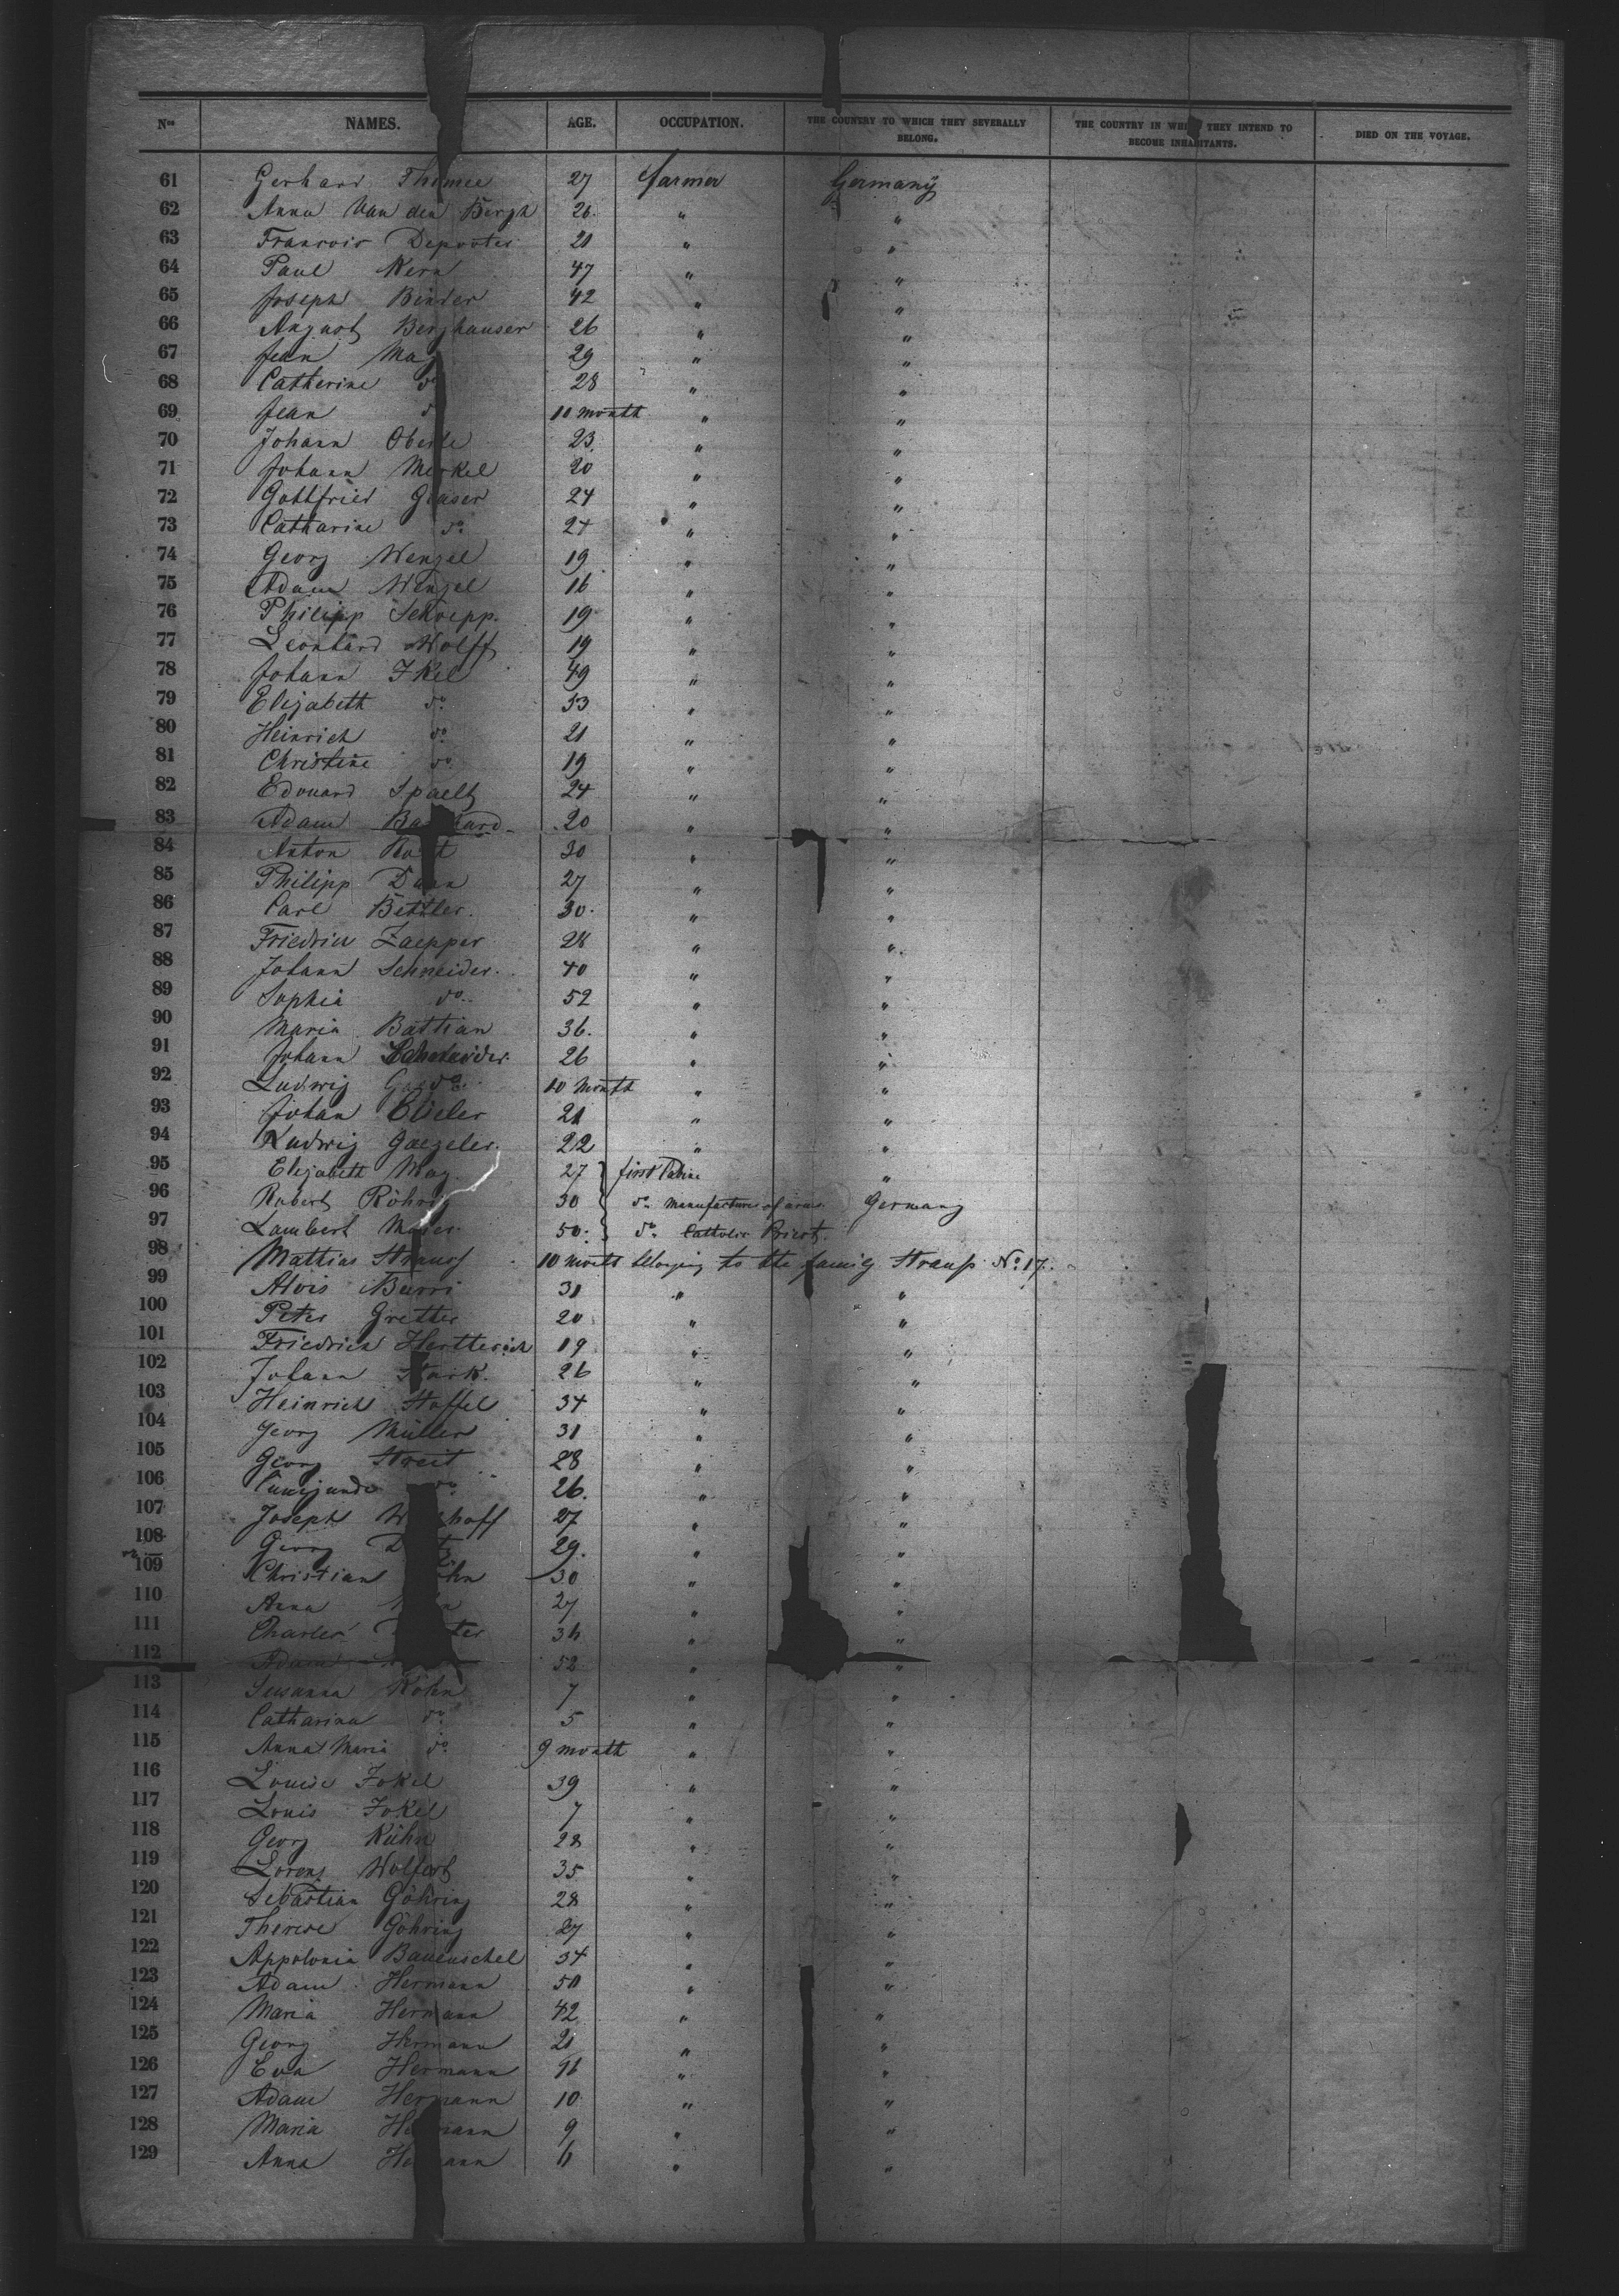 Nos NAMES. AGE. OCCUPATION. THE COUNTRY TO WHICH THEY SEVERALLY BELONG. THE COUNTRY IN WHICH THEY INTEND TO BECOME INHABITANTS. DIED ON THE VOYAGE.
61 Gerhard 27 farmer Germany
62 Anna Van den Bergh 26. " "
63 Francois Depooter 21 " "
64 Paul Kern 47 " "
65 Joseph Binder 42 " "
66 August Berghauser 26 " "
67 Jean May 29 " "
68 Catherine do 28 " "
69 Jean do 10 month " "
70 Johann Oberle 23. " "
71 Johann Merkel 20 " "
72 Gottfried Glaser 24 " "
73 Catharine do. 24 " "
74 Georg Wenzel 19 " "
75 Adam Wenzel 16 " "
76 Philipp Schoepp. 19 " "
77 Leonhard Wolff 19 " "
78 Johann Ikel 49 " "
79 Elizabeth do. 53 " "
80 Heinrich do. 21 " "
81 Christine do. 19 " "
82 Edouard Spaelt 24 " "
83 Adam 20 " "
84 Anton 30 " "
85 Philipp 27 " "
86 Carl Bettler. 30. " "
87 Friedrich Zaepper 28 " "
88 Johann Schneider. 40 " "
89 Sophia do. 52 " "
90 Maria Battian 36. " "
91 Johann Schneider. 26 " "
92 Ludwig do. 10 Month " "
93 Johan 21 " "
94 Ludwig Gaegeler. 22 " "
95 Elizabeth May 27 first Cabine "
96 Robert Röhrig 30 do. manufacturer of arms. Germany
97 Lambert 50. do. Catholic Priest.
98 Mathias Strauss 10 month belonging to the family Strauss No. 17.
99 Alois Burri 31 " "
100 Peter Gretter 20 " "
101 Friedrich Hertterich 19 " "
102 Johann Stark. 26 " "
103 Heinrich Stoffel 34 " "
104 Georg Müller 31 " "
105 Georg Streit 28 " "
106 Cunigunde do 26. " "
107 Joseph 27 " "
108 Georg 29. " "
109 Christian 30 " "
110 Anna 27 " "
111 Charles 36 " "
112 Adam 52 " "
113 Susanna Köhn 7 " "
114 Catharina do. 5 " "
115 Anna Maria do. 9 month " "
116 Louise Jokel 39 " "
117 Louis Jokel 7 " "
118 Georg Kühn 28 " "
119 Lorenz Wolfert 35 " "
120 Sebastian Göhring 28 " "
121 Therese Göhring 27 " "
122 Appolonia Bauenschel 34 " "
123 Adam Hermann 50 " "
124 Maria Hermann 42 " "
125 Georg Hermann 21 " "
126 Eva Hermann " "
127 Adam Hermann 10 " "
128 Maria Hermann 9 " "
129 Anna Hermann 6 " "